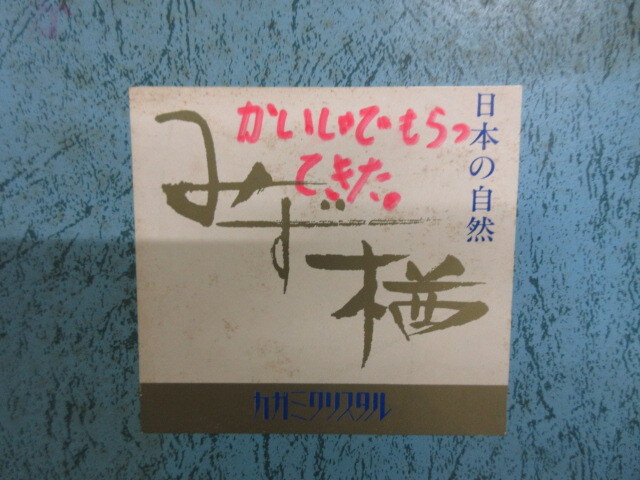 日本の自然
かいじでもらっ
てきた。
みず楢
カガミクリスタル